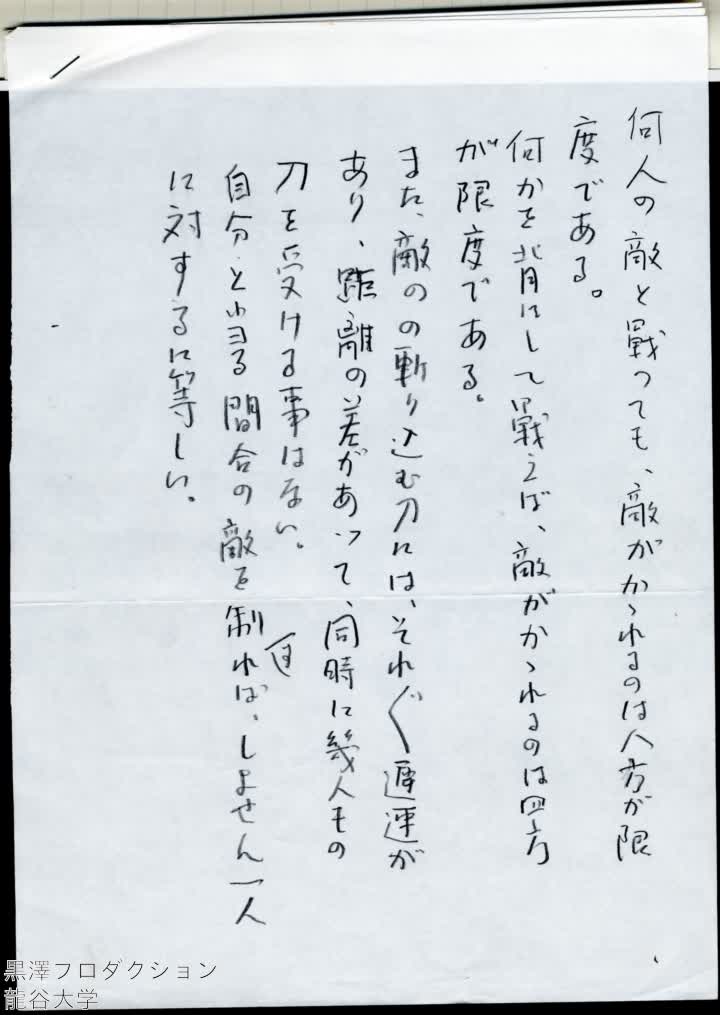 何人の敵と戦っても、敵がかゝれるのは八方が限
度である。
何かを背にして戦えば、敵がかゝれるのは四方
が限度である。
また、敵のの斬り込む刀には、それ〴〵遅速が
あり、距離の差があって、同時に幾人もの
刀を受ける事はない。
自分と当る間合の敵を制すれば、しょせん一人
に対するに等しい。
黒澤プロダクション
龍谷大学